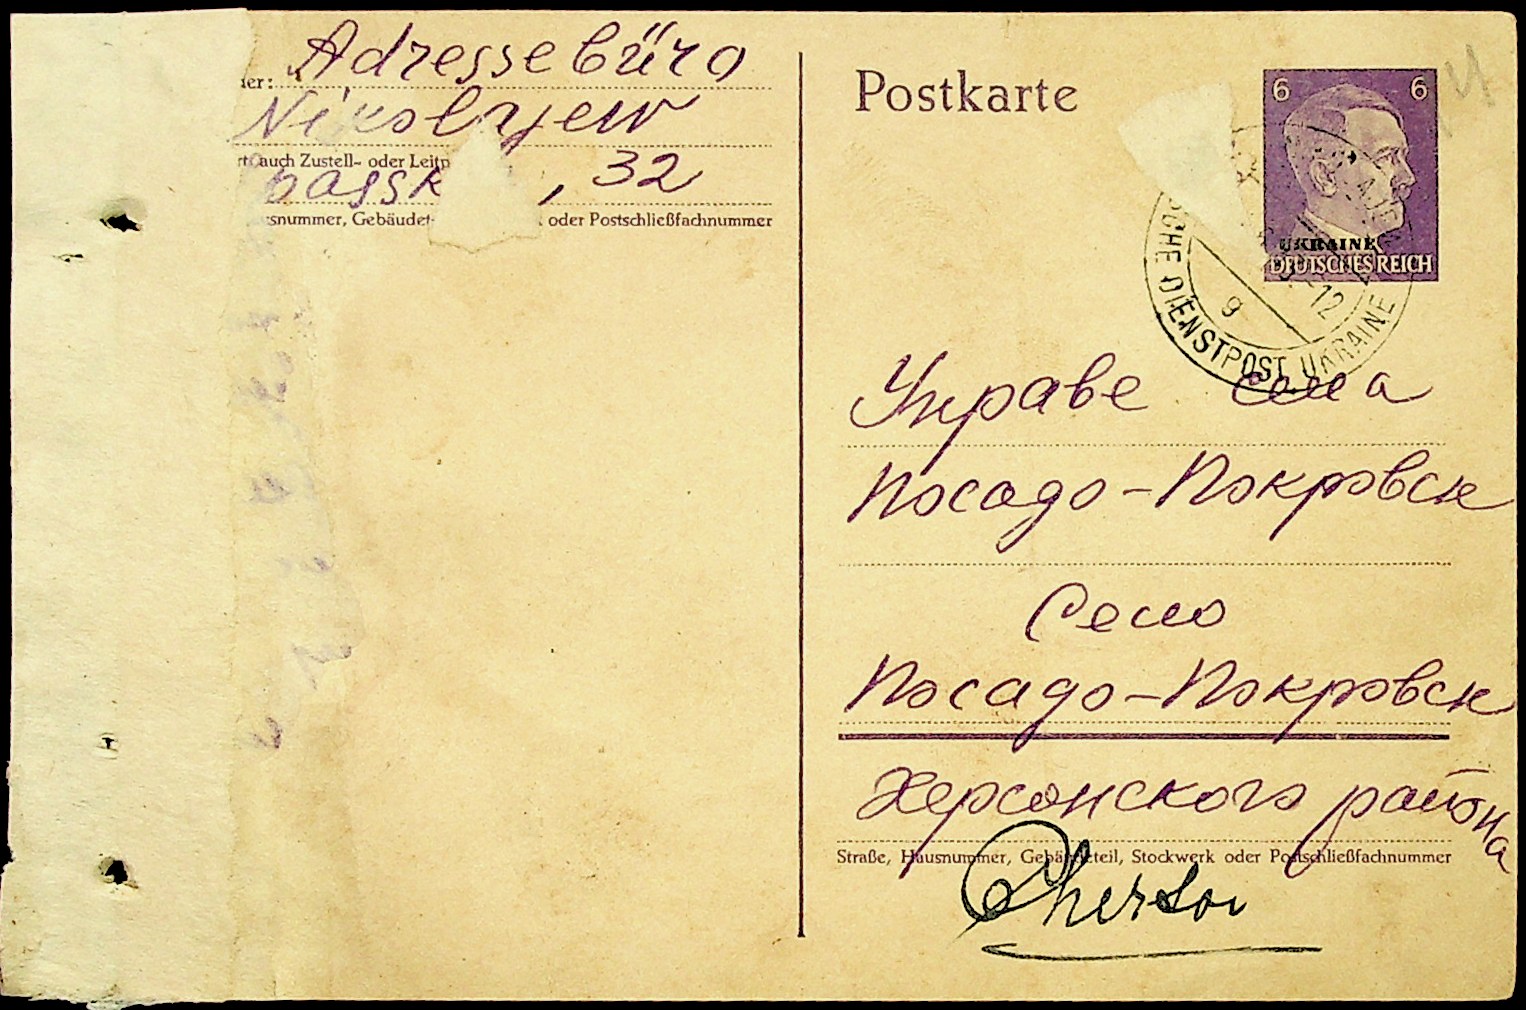 Adressebüro
er:
Nikolajew
rt, auch Zustell- oder Leitp
bassk , 32
snummer, Gebäudet oder Postschließfachnummer
Postkarte
6 6
UKRAINE
DEUTSCHES REICH
SCHE DIENSTPOST UKRAINE
-12
g
Управе села
Посадо-Покровск
Село
Посадо-Покровск
Херсонского района
Straße, Hausnummer, Gebäudeteil, Stockwerk oder Postschließfachnummer
Cherson